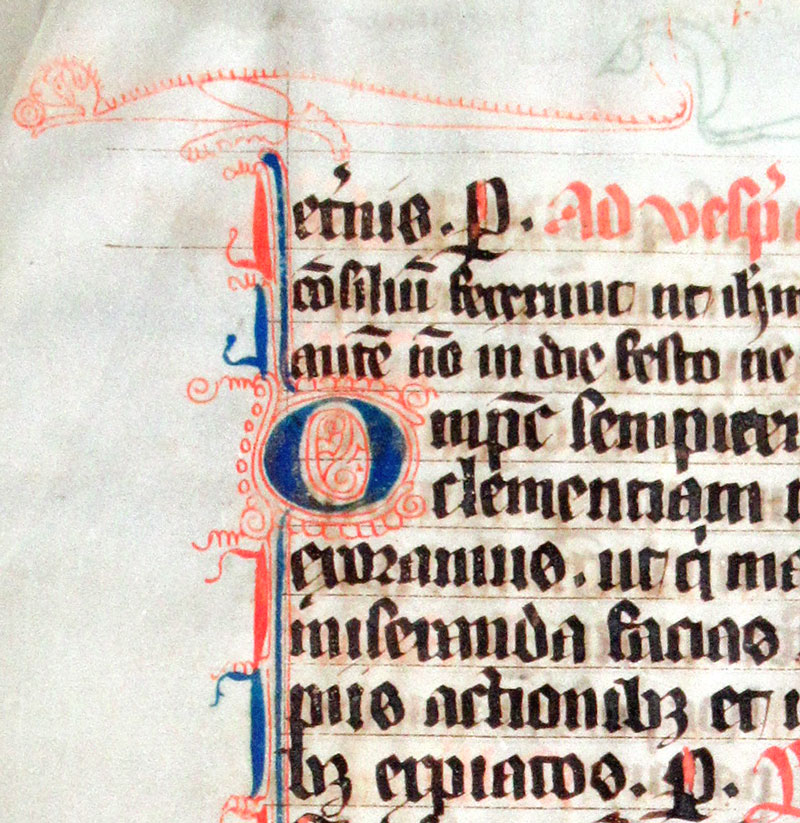 et̄nis. p. Ad vesp̄
cōsiliū fecerunt ut ihm
autē nō in die festo ne
Omp̄c sempiter
clementiam
exoramus. ut q̄ me
miseranda facias
piis actionibꝫ et
bꝫ expiatos. p.